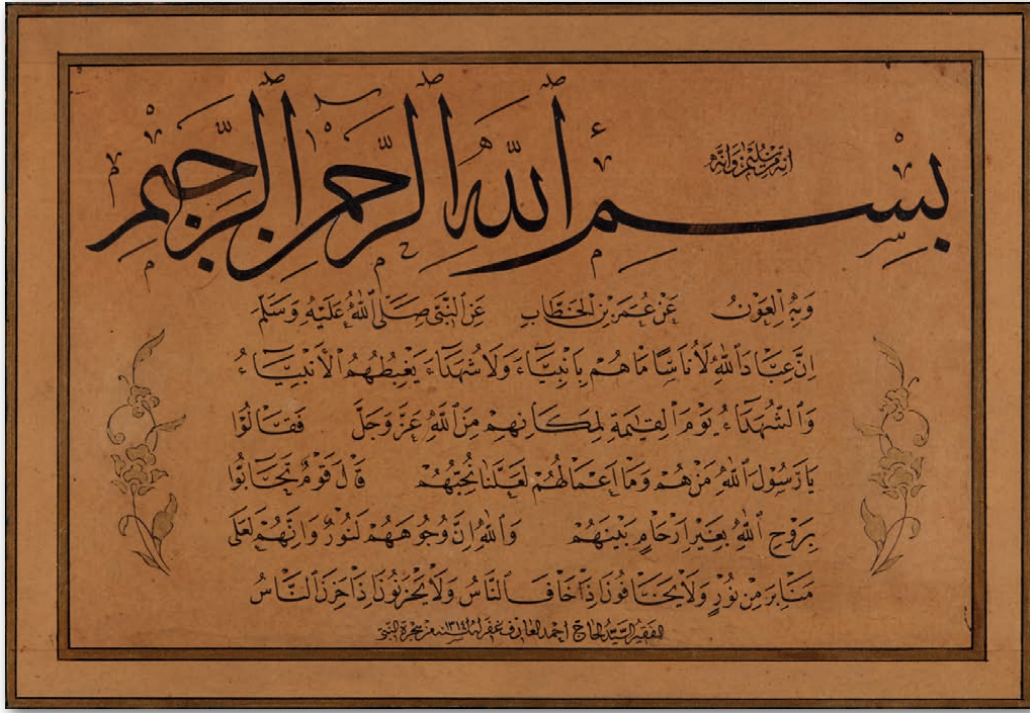 انه من سليمن وانه
بِسْمِ ٱللّٰهِ ٱلرَّحْمٰنِ ٱلرَّحِيمِ
وَبِهِ الْعَوْنُ عَنْ عُمَرَ بْنِ الْخَطَّابِ عَنِ النَّبِىِّ صَلَّى اللّٰهُ عَلَيْهِ وَسَلَّمَ
اِنَّ عِبَادَ اللّٰهِ لَاُنَاسًا مَا هُمْ بِاَنْبِيَاءَ وَلَا شُهَدَاءَ يَغْبِطُهُمُ الْاَنْبِيَاءُ
وَالشُّهَدَاءُ يَوْمَ الْقِيٰمَةِ لِمَكَانِهِمْ مِنَ اللّٰهِ عَزَّ وَجَلَّ فَقَالُوا
يَا رَسُولَ اللّٰهِ مَنْ هُمْ وَمَا اَعْمَالُهُمْ لَعَلَّنَا نُحِبُّهُمْ قَالَ قَوْمٌ تَحَابُّوا
بِرَوْحِ اللّٰهِ بِغَيْرِ اَرْحَامٍ بَيْنَهُمْ وَاللّٰهِ اِنَّ وُجُوهَهُمْ لَنُورٌ وَاِنَّهُمْ لَعَلٰى
مَنَابِرَ مِنْ نُورٍ وَلَا يَخَافُونَ اِذَا خَافَ النَّاسُ وَلَا يَحْزَنُونَ اِذَا حَزِنَ النَّاسُ
الفقير السيد الحاج احمد العارف غفر لهما سنه ١٣١٤ من هجرة النبى